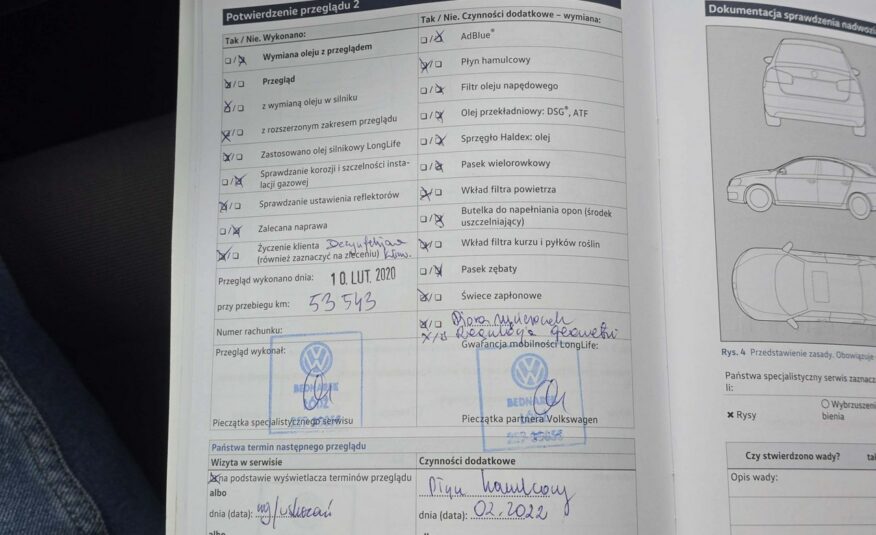 Potwierdzenie przeglądu 2
Tak / Nie. Wykonano:
Wymiana oleju z przeglądem
Przegląd
z wymianą oleju w silniku
z rozszerzonym zakresem przeglądu
Zastosowano olej silnikowy LongLife
Sprawdzanie korozji i szczelności insta-
lacji gazowej
Sprawdzanie ustawienia reflektorów
Zalecana naprawa
Życzenie klienta
(również zaznaczyć na zleceniu) klim.
Przegląd wykonano dnia: 10. LUT. 2020
przy przebiegu km: 53 543
Numer rachunku:
Przegląd wykonał:
BEDNAREK
ŁÓDŹ
Pieczątka specjalistycznego serwisu
Tak / Nie. Czynności dodatkowe – wymiana:
AdBlue®
Płyn hamulcowy
Filtr oleju napędowego
Olej przekładniowy: DSG®, ATF
Sprzęgło Haldex: olej
Pasek wielorowkowy
Wkład filtra powietrza
Butelka do napełniania opon (środek
uszczelniający)
Wkład filtra kurzu i pyłków roślin
Pasek zębaty
Świece zapłonowe
Pióra wycieraczek
Regulacja geometri
Gwarancja mobilności LongLife:
BEDNAREK
ŁÓDŹ
Pieczątka partnera Volkswagen
Państwa termin następnego przeglądu
Wizyta w serwisie
na podstawie wyświetlacza terminów przeglądu
albo
dnia (data): wg/wskazań
albo
Czynności dodatkowe
Płyn hamulcowy
dnia (data): 02.2022
Dokumentacja sprawdzenia nadwozia
Rys. 4 Przedstawienie zasady. Obowiązuje
Państwa specjalistyczny serwis zaznacz
li:
✖ Rysy
○ Wybrzuszeni
bienia
Czy stwierdzono wady? tak
Opis wady: